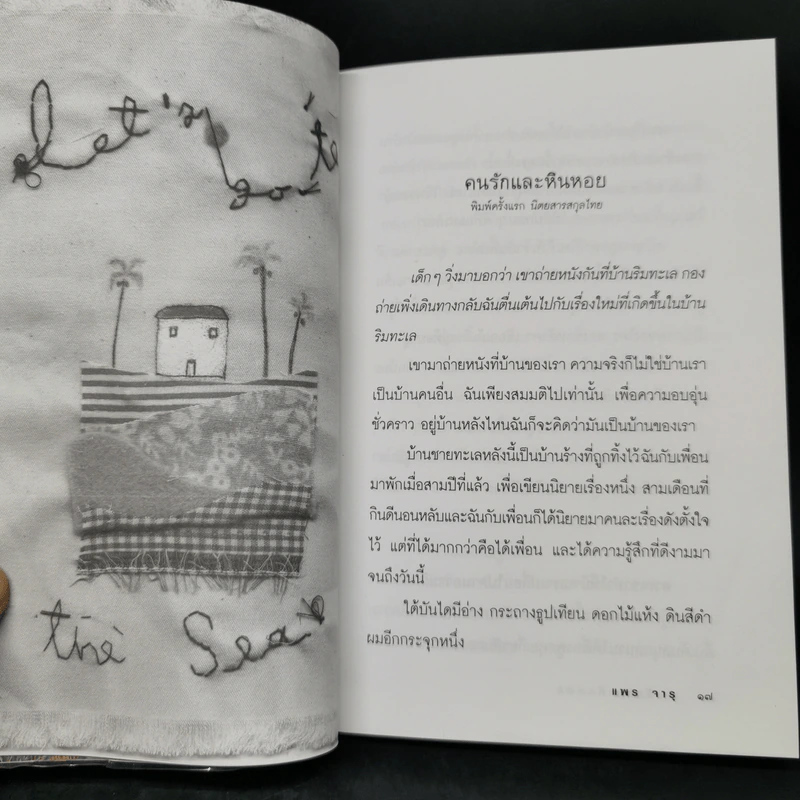 Let's go to
the Sea
คนรักและหินหอย
พิมพ์ครั้งแรก นิตยสารสกุลไทย
เด็กๆ วิ่งมาบอกว่า เขาถ่ายหนังกันที่บ้านริมทะเล กอง
ถ่ายเพิ่งเดินทางกลับฉันตื่นเต้นไปกับเรื่องใหม่ที่เกิดขึ้นในบ้าน
ริมทะเล
เขามาถ่ายหนังที่บ้านของเรา ความจริงก็ไม่ใช่บ้านเรา
เป็นบ้านคนอื่น ฉันเพียงสมมติไปเท่านั้น เพื่อความอบอุ่น
ชั่วคราว อยู่บ้านหลังไหนฉันก็จะคิดว่ามันเป็นบ้านของเรา
บ้านชายทะเลหลังนี้เป็นบ้านร้างที่ถูกทิ้งไว้ฉันกับเพื่อน
มาพักเมื่อสามปีที่แล้ว เพื่อเขียนนิยายเรื่องหนึ่ง สามเดือนที่
กินดีนอนหลับและฉันกับเพื่อนก็ได้นิยายมาคนละเรื่องดังตั้งใจ
ไว้ แต่ที่ได้มากกว่าคือได้เพื่อน และได้ความรู้สึกที่ดีงามมา
จนถึงวันนี้
ใต้บันไดมีอ่าง กระถางธูปเทียน ดอกไม้แห้ง ดินสีดำ
ผมอีกกระจุกหนึ่ง
แพร จารุ ๑๗